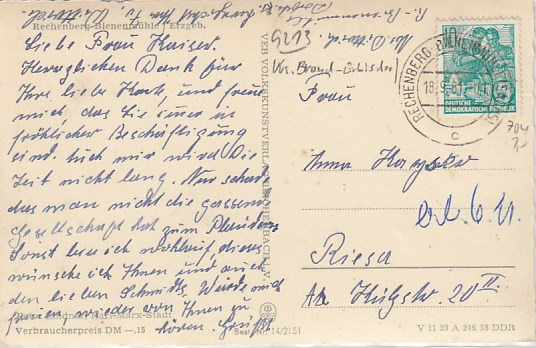 Rechenberg-Bienenmühle / Erzgeb.
Liebe Frau Kaiser.
Herzlichen Dank für
Ihre liebe Karte, und freue
mich, das Sie immer in
fröhlicher Beschäftigung
sind. Auch mir wird Die
Zeit nicht lang. Nur schade
das man nicht die passende
Gesellschaft hat zum Plaudern
Sonst bin ich wohlauf, dieses
wünsche ich Ihnen und auch
den lieben Schmidts. Würde mich
freuen, wieder von Ihnen zu
hören. Grüßt
Karl-Marx-Stadt
Verbraucherpreis DM —,15
Best. Nr. 14/2151
VEB VOLKSKUNSTVERLAG REICHENBACH i. V.
9213
Krs. Brand-Erbisdorf
RECHENBERG-BIENENMÜHLE
18.9.61
c
10
DEUTSCHE
DEMOKRATISCHE REPUBLIK
704
3,-
Frau
Anna
Riesa
20 II.
V 11 28 A 246 38 DDR